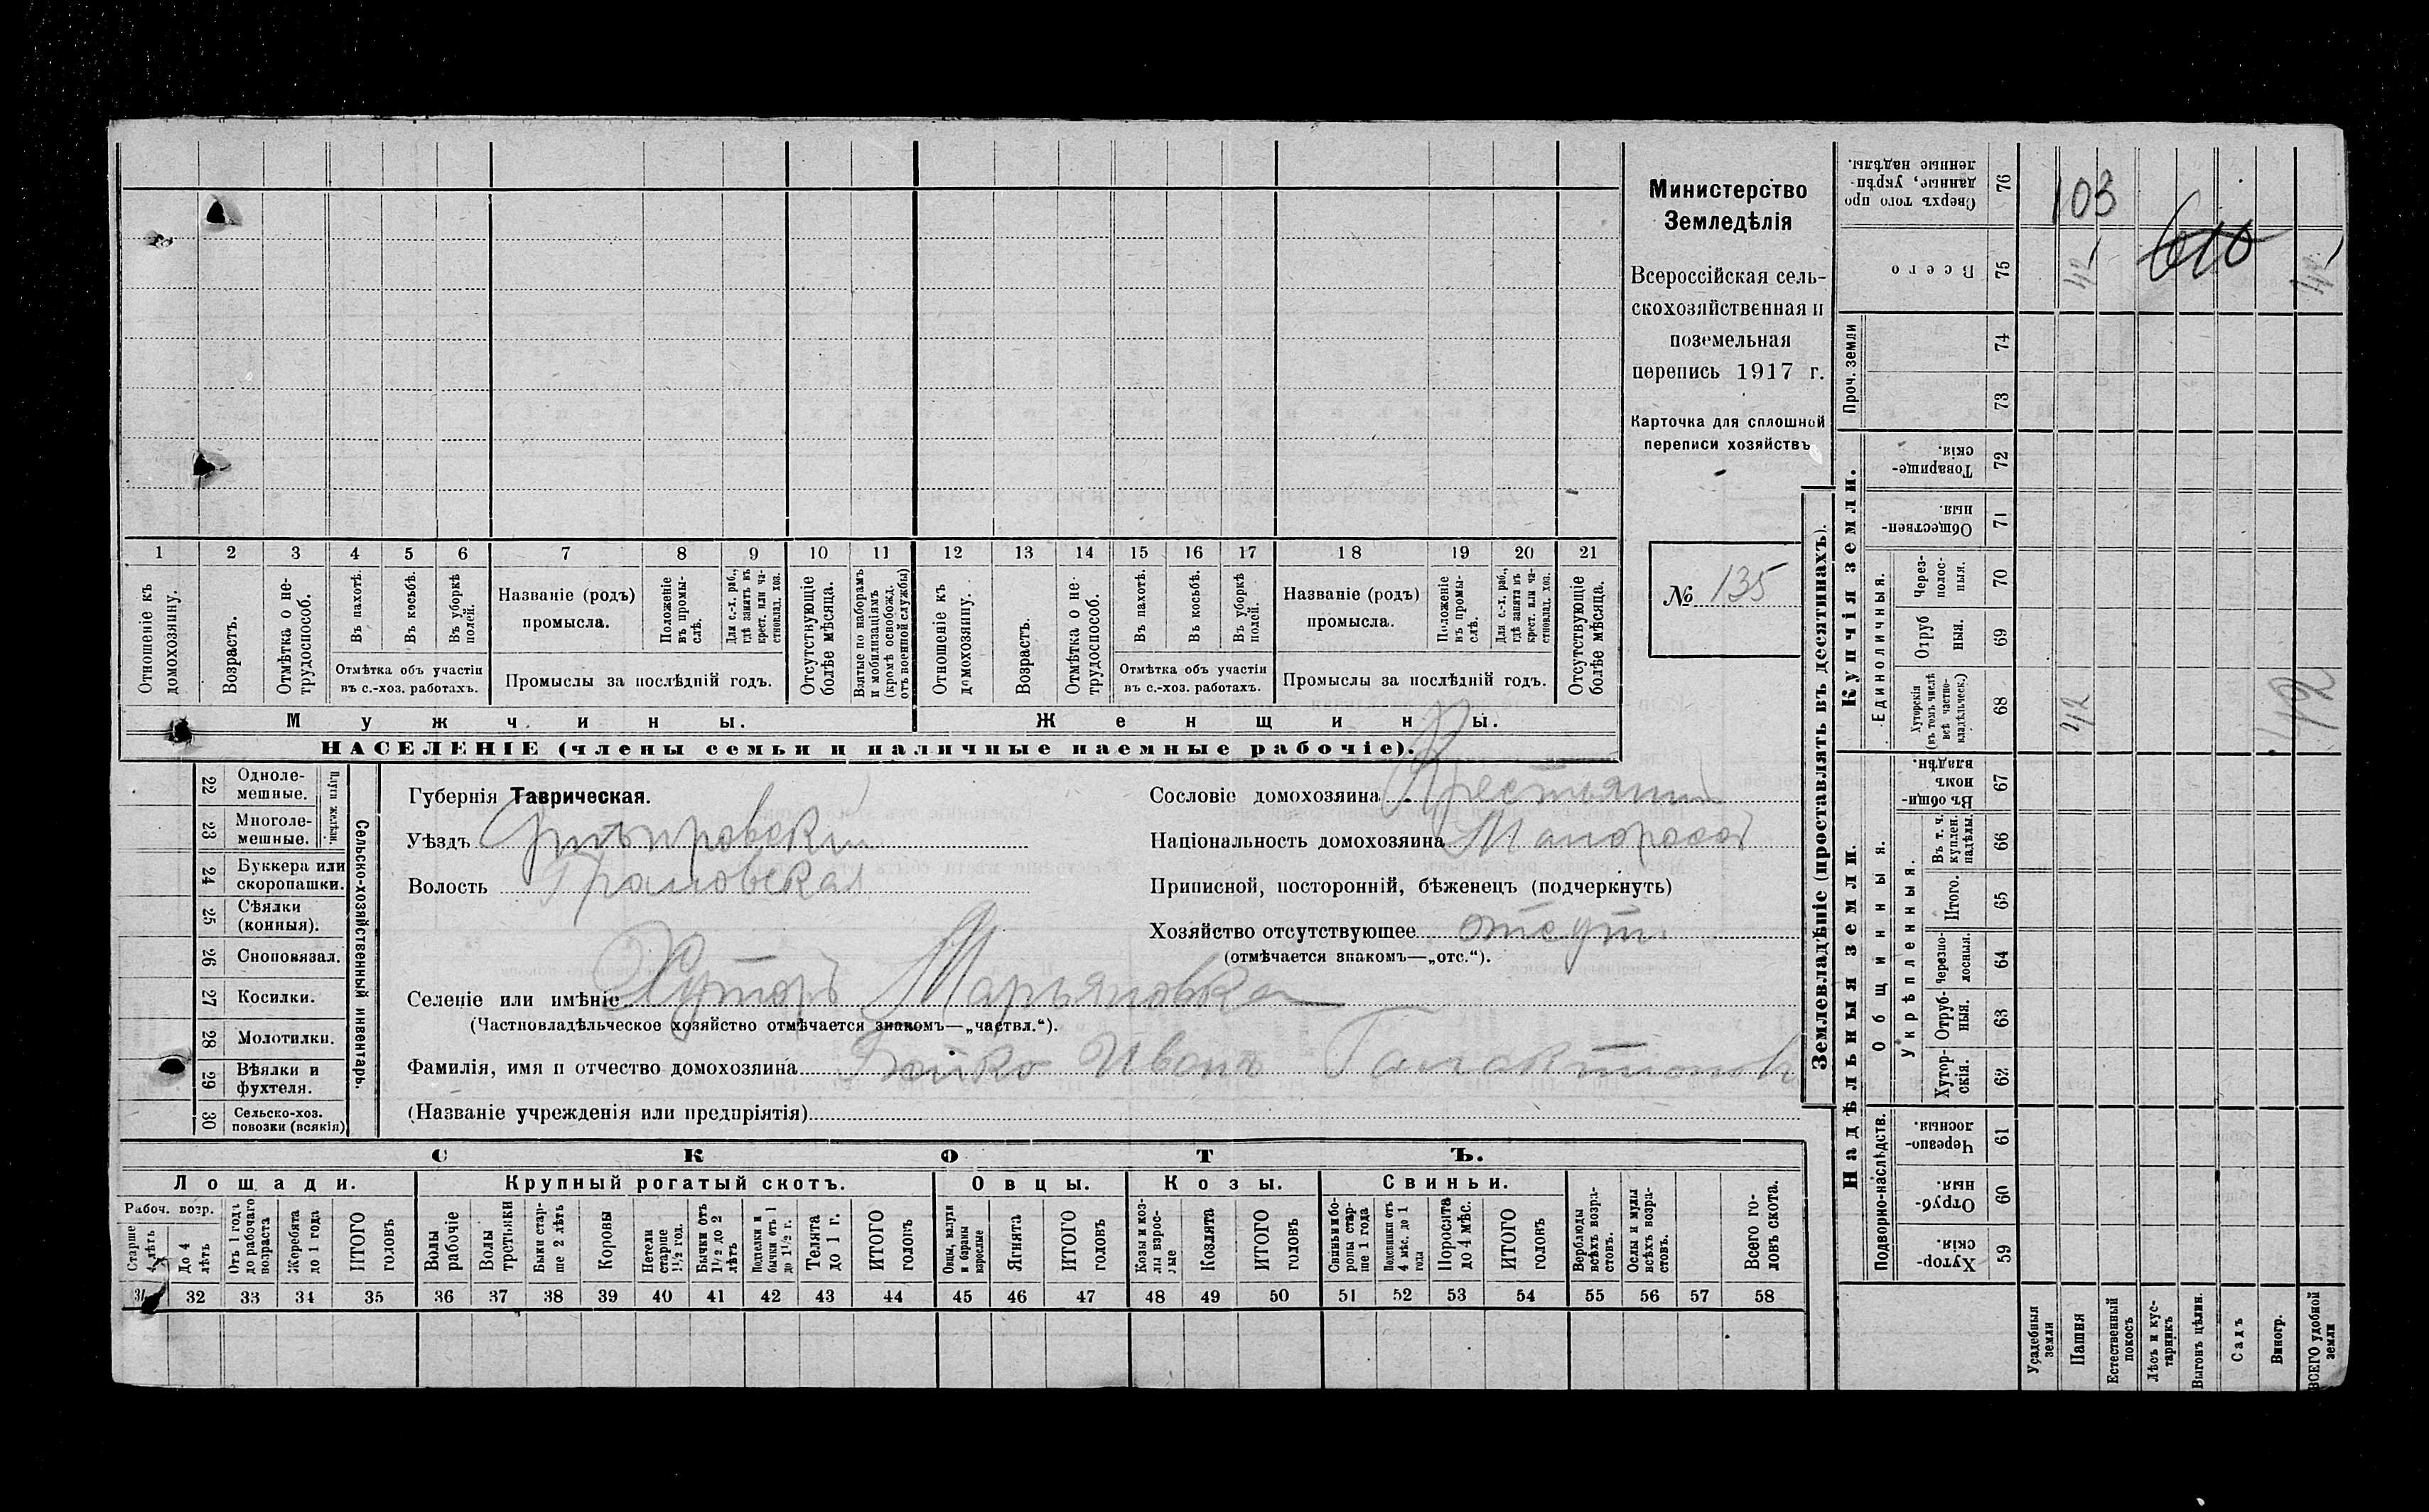 1 2 3 4 5 6 7 8 9 10 11 12 13 14 15 16 17 18 19 20 21
Отношеніе къ домохозяину.
Возрастъ.
Отмѣтка о не-
трудоспособ.
Въ пахотѣ.
Въ косьбѣ.
Въ уборкѣ
полей.
Отмѣтка объ участіи
въ с.-хоз. работахъ.
Названіе (родъ)
промысла.
Положеніе
въ промы-
слѣ.
Для с.-х. раб.,
гдѣ занятъ въ
крест. или ча-
стновлад. хоз.
Промыслы за послѣдній годъ.
Отсутствующіе
болѣе мѣсяца.
Взятые по наборамъ
и мобилизаціямъ
(кромѣ освобожд.
отъ военной службы)
Отношеніе къ
домохозяину.
Возрастъ.
Отмѣтка о не-
трудоспособ.
Въ пахотѣ.
Въ косьбѣ.
Въ уборкѣ
полей.
Отмѣтка объ участіи
въ с.-хоз. работахъ.
Названіе (родъ)
промысла.
Положеніе
въ промы-
слѣ.
Для с.-х. раб.,
гдѣ занята въ
крест. или ча-
стновлад. хоз.
Промыслы за послѣдній годъ.
Отсутствующіе
болѣе мѣсяца.
Мужчины.
Женщины.
НАСЕЛЕНІЕ (члены семьи и наличные наемные рабочіе).
Министерство
Земледѣлія
Всероссійская сель-
скохозяйственная и
поземельная
перепись 1917 г.
Карточка для сплошной
переписи хозяйствъ
№ 135
22 Одноле-
мешные.
23 Многоле-
мешные.
Плуги желѣзн.
24 Буккера или
скоропашки.
25 Сѣялки
(конныя).
26 Сноповязал.
27 Косилки.
28 Молотилки.
29 Вѣялки и
фухтеля.
30 Сельско-хоз.
повозки (всякія)
Сельско-хозяйственный инвентарь.
Губернія Таврическая.
Уѣздъ Днѣпровскій
Волость
Селеніе или имѣніе Хуторъ Марьяновка
(Частновладѣльческое хозяйство отмѣчается знакомъ—„частвл.“).
Фамилія, имя и отчество домохозяина Бойко Иванъ Галактіонов
(Названіе учрежденія или предпріятія)
Сословіе домохозяина Крестьянин
Національность домохозяина Малоросс
Приписной, посторонній, бѣженецъ (подчеркнуть)
Хозяйство отсутствующее отсут.
(отмѣчается знакомъ—„отс.“).
СКОТЪ.
Лошади.
Крупный рогатый скотъ.
Овцы.
Козы.
Свиньи.
Рабоч. возр.
Старше
4 лѣтъ
До 4
лѣтъ
Отъ 1 года
до рабочаго
возраста
Жеребята
до 1 года
ИТОГО
головъ
Волы
рабочіе
Волы
третьяки
Быки стар-
ше 2 лѣтъ
Коровы
Нетели
старше
1½ год.
Бычки отъ
1½ до 2
лѣтъ
Подтелки и
бычки отъ 1
до 1½ г.
Телята
до 1 г.
ИТОГО
головъ
Овцы, валухи
и бараны
взрослые
Ягнята
ИТОГО
головъ
Козы и коз-
лы взрос-
лые
Козлята
ИТОГО
головъ
Свиньи и бо-
ровы стар-
ше 1 года
Подсвинки отъ
4 мѣс. до 1
года
Поросята
до 4 мѣс.
ИТОГО
головъ
Верблюды
всѣхъ возра-
стовъ.
Ослы и мулы
всѣхъ возра-
стовъ.
Всего го-
ловъ скота.
31 32 33 34 35 36 37 38 39 40 41 42 43 44 45 46 47 48 49 50 51 52 53 54 55 56 57 58
Землевладѣніе (проставлять въ десятинахъ).
Сверхъ того про
данные, укрѣп-
ленные надѣлы.
76
103
Всего
75
42
610
42
Проч. земли
74
73
Купчія земли.
Товарище-
скія.
72
Обществен-
ныя.
71
Единоличныя.
Через-
полос-
ныя.
70
Отруб
ныя.
69
Хуторскія
(въ томъ числѣ
всѣ частно-
владѣльческ.)
68
42
42
Надѣльныя земли.
Общинныя.
Въ общи-
номъ
владѣн.
67
Укрѣпленныя.
Въ т. ч.
куплен.
надѣлы.
66
Итого.
65
Черезпо-
лосныя.
64
Отруб-
ныя.
63
Хутор-
скія.
62
Подворно-наслѣдств.
Черезпо-
лосныя.
61
Отруб-
ныя.
60
Хутор-
скія.
59
Усадебныя
земли
Пашня
Естественный
покосъ
Лѣсъ и кус-
тарникъ
Выгонъ цѣлин.
Садъ
Виногр.
ВСЕГО удобной
земли